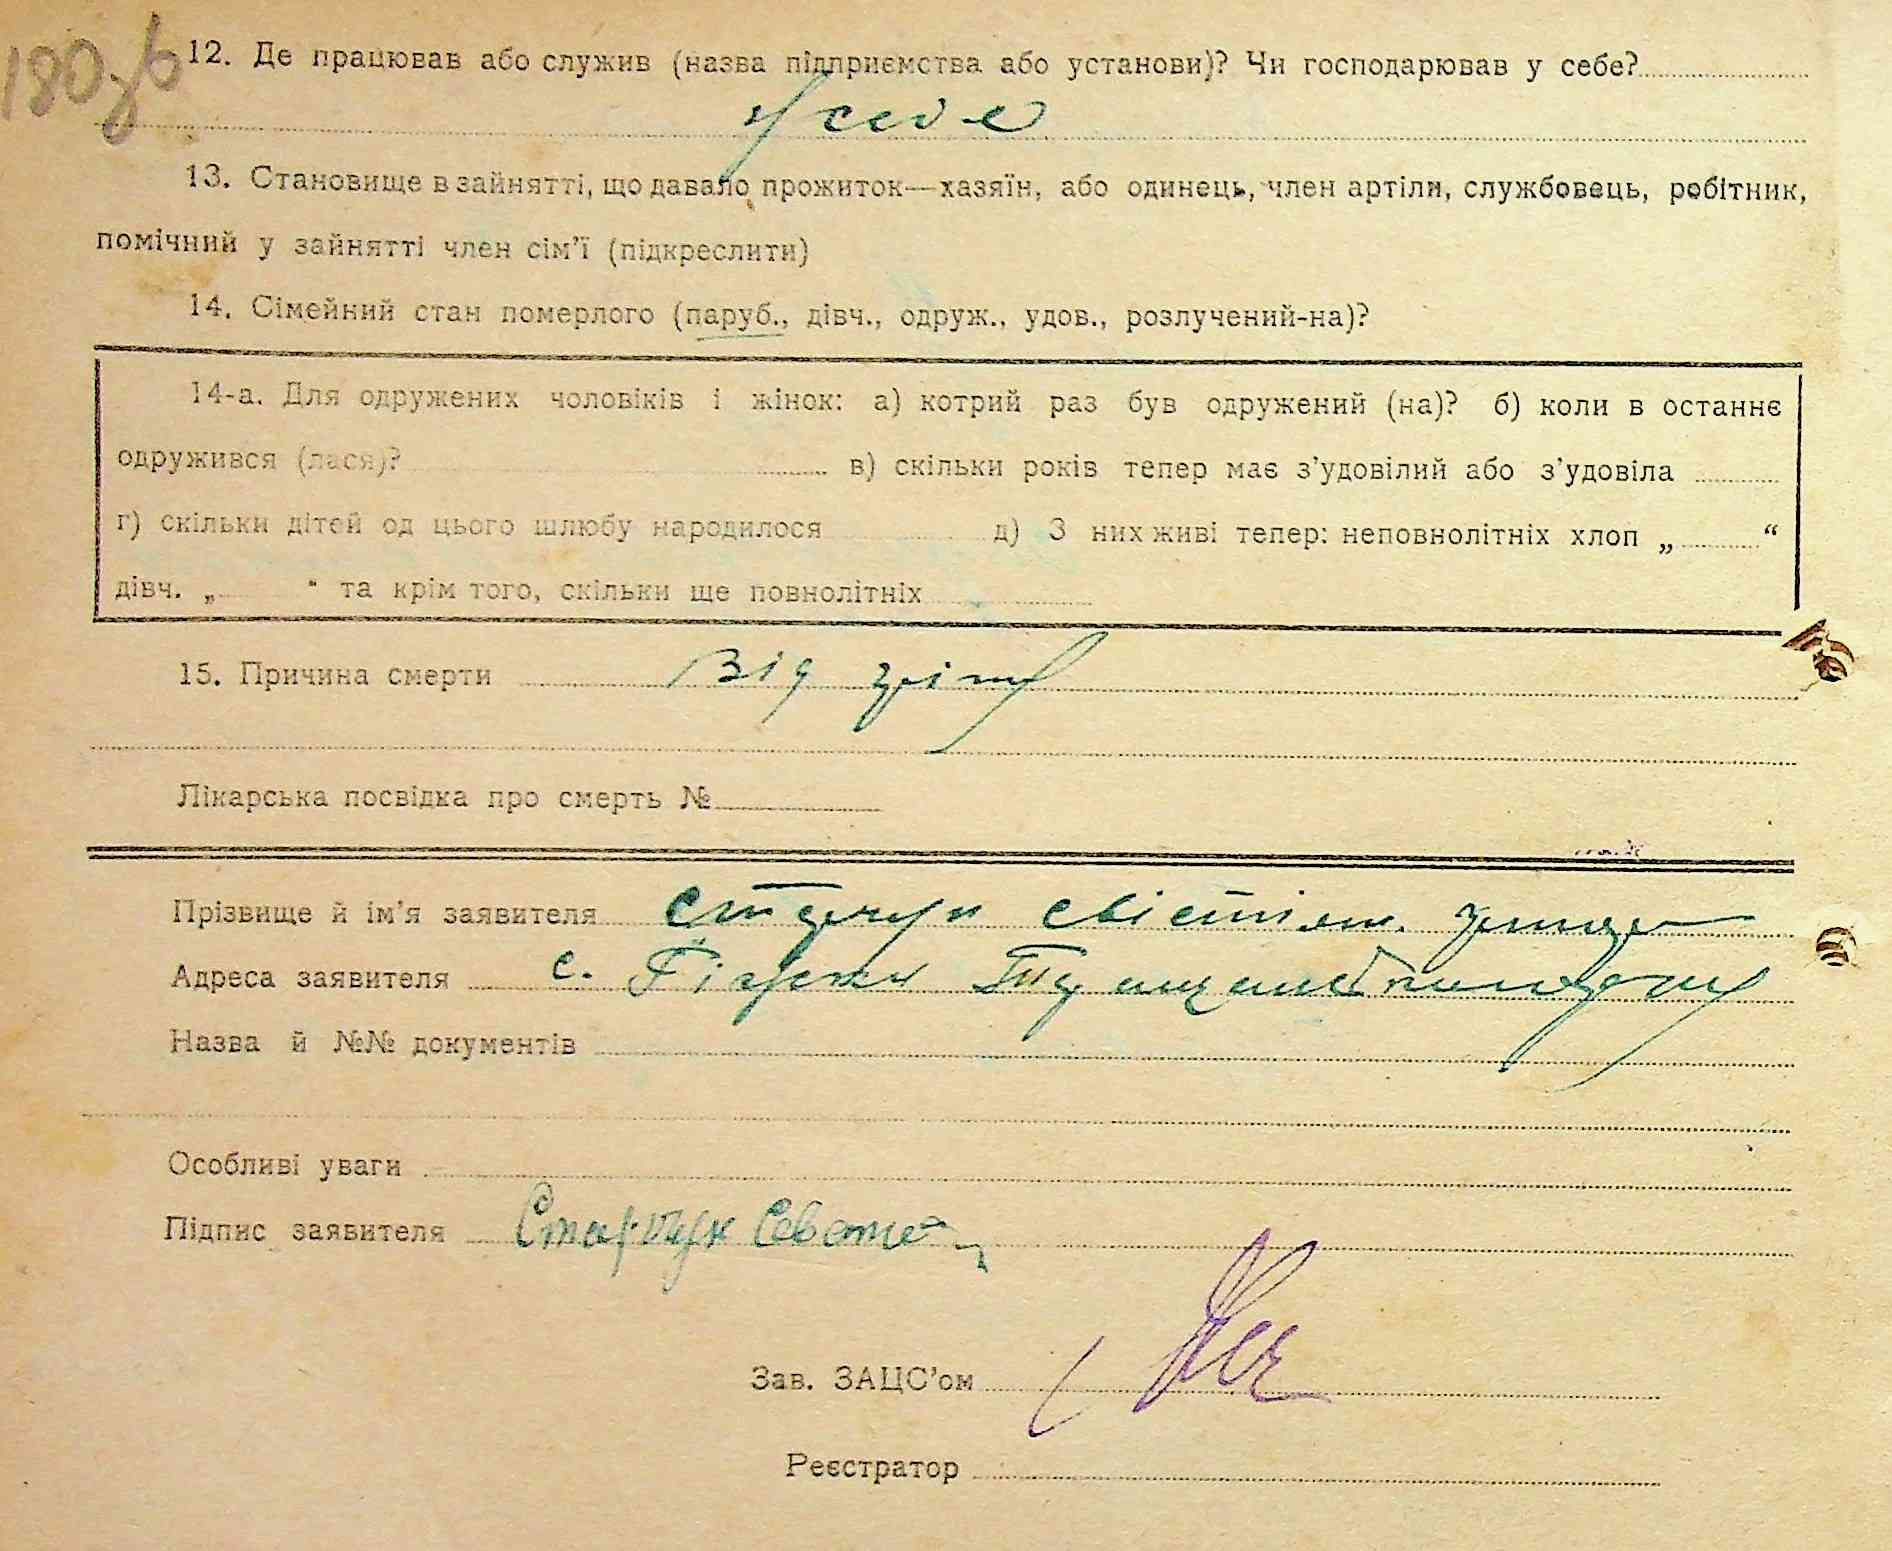 180зв
12. Де працював або служив (назва підприємства або установи)? Чи господарював у себе?
у себе
13. Становище в зайнятті, що давало прожиток—хазяїн, або одинець, член артіли, службовець, робітник,
помічний у зайнятті член сім'ї (підкреслити)
14. Сімейний стан померлого (паруб., дівч., одруж., удов., розлучений-на)?
14-а. Для одружених чоловіків і жінок: а) котрий раз був одружений (на)? б) коли в останнє
одружився (лася)? в) скільки років тепер має з'удовілий або з'удовіла
г) скільки дітей од цього шлюбу народилося д) З них живі тепер: неповнолітніх хлоп „ “
дівч. „ “ та крім того, скільки ще повнолітніх
15. Причина смерти від
Лікарська посвідка про смерть №
Прізвище й ім'я заявителя
Адреса заявителя с.
Назва й №№ документів
Особливі уваги
Підпис заявителя
Зав. ЗАЦС'ом
Реєстратор